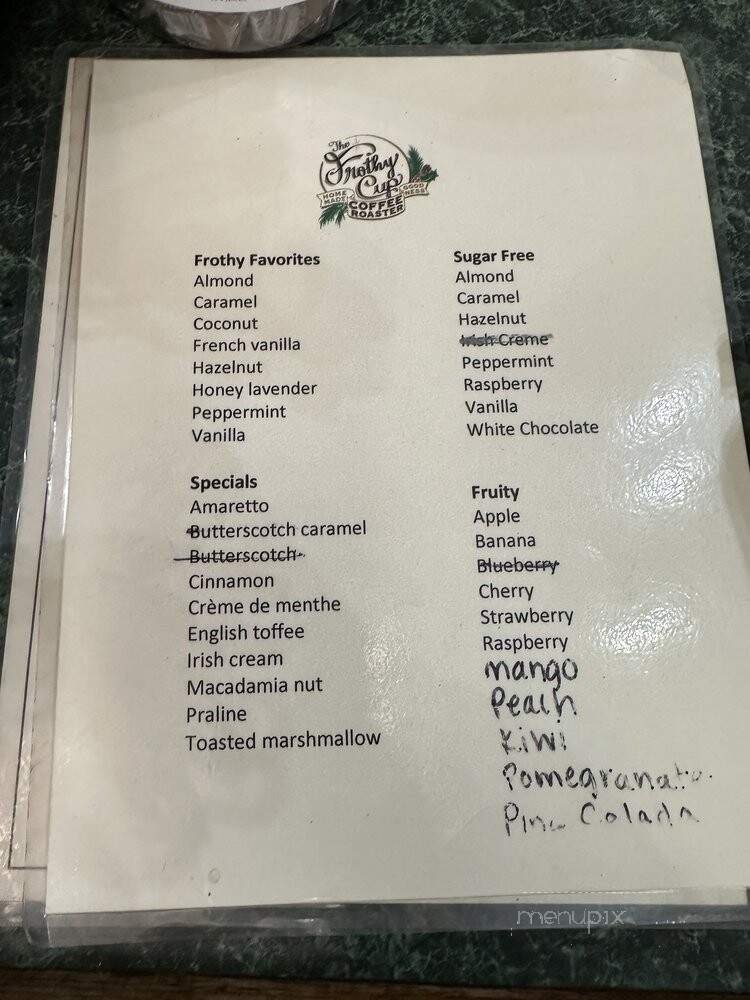 The
Frothy
Cup
HOME MADE
GOOD NESS
COFFEE
ROASTER
Frothy Favorites
Almond
Caramel
Coconut
French vanilla
Hazelnut
Honey lavender
Peppermint
Vanilla
Specials
Amaretto
Butterscotch caramel
Butterscotch
Cinnamon
Crème de menthe
English toffee
Irish cream
Macadamia nut
Praline
Toasted marshmallow
Sugar Free
Almond
Caramel
Hazelnut
Irish Creme
Peppermint
Raspberry
Vanilla
White Chocolate
Fruity
Apple
Banana
Blueberry
Cherry
Strawberry
Raspberry
mango
Peach
Kiwi
Pomegranate
Pina Colada
menupix